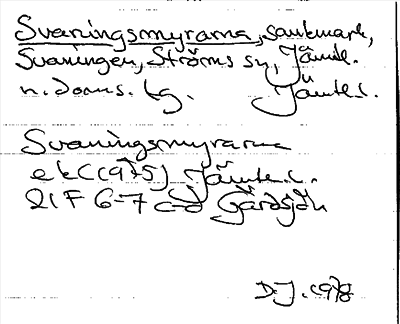 Svaningsmyrarna, sankmark,
Svaningen, Ströms sn, Jämtl.
n. doms. tg. Jämtl. l.
Svaningsmyrarna
ek (1975) Jämtl. l.
21F 6-7 c-d Gärdsjön
D.J. 1978